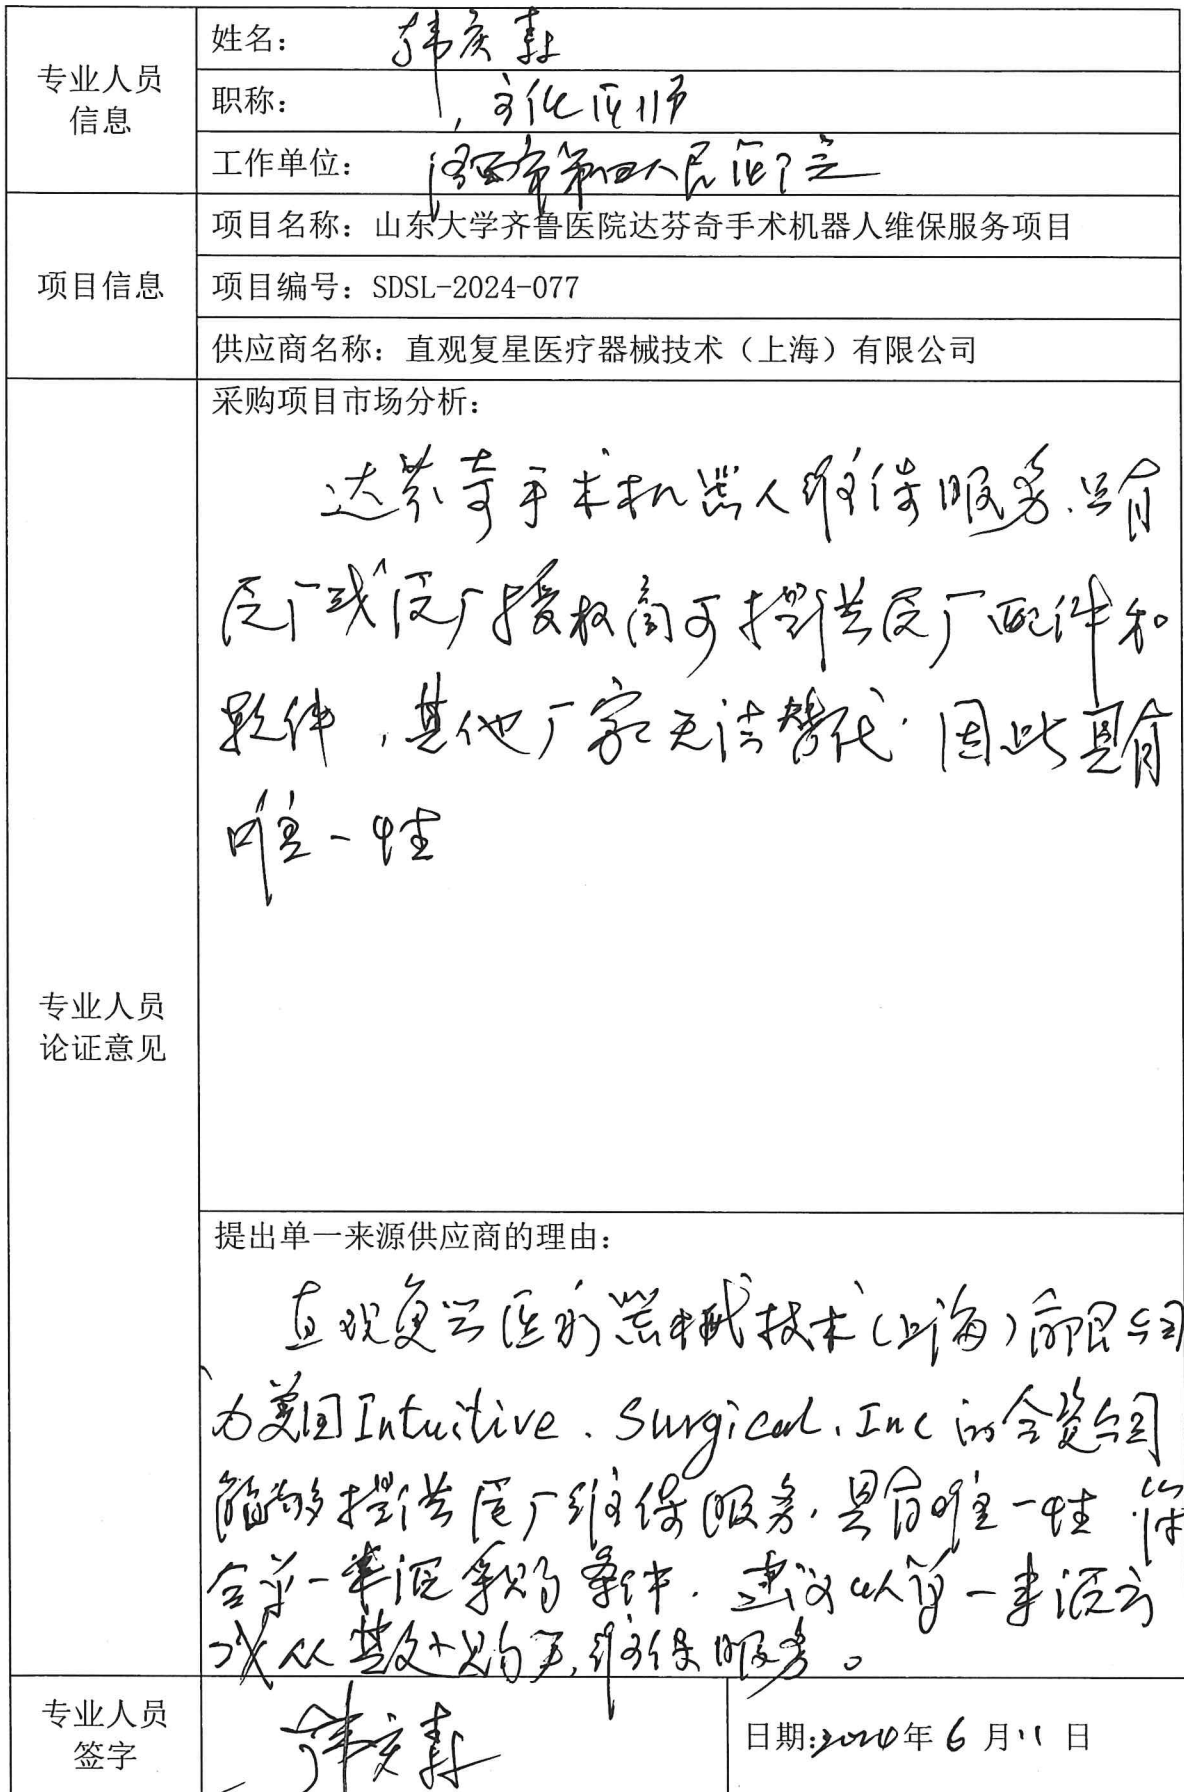 专业人员
信息
姓名：韩庆
职称：主任医师
工作单位：济南市第四人民医院
项目信息
项目名称：山东大学齐鲁医院达芬奇手术机器人维保服务项目
项目编号：SDSL-2024-077
供应商名称：直观复星医疗器械技术（上海）有限公司
专业人员
论证意见
采购项目市场分析：
达芬奇手术机器人维保服务.只有
原厂或原厂授权商可提供原厂配件和
软件，其他厂家无法替代.因此具有
唯一性
提出单一来源供应商的理由：
直观复星医疗器械技术(上海)有限公司
为美国Intuitive.Surgical.Inc的合资公司
能够提供原厂维保服务.具有唯一性 符
合单一来源采购条件.建议以单一来源方
式从其处购买维保服务。
专业人员
签字
韩庆
日期:2024年6月11日